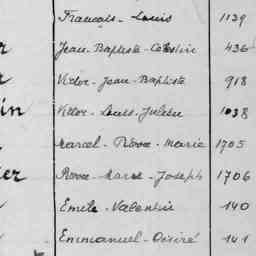 François - Louis 1129
r Jean - Baptiste - Célestin 436
r Victor - Jean - Baptiste 918
in Victor - Louis - Julien 1038
Marcel - Pierre - Marie 1705
er Pierre - Marie - Joseph 1706
Emile - Valentin 140
Emmanuel - Désiré 141